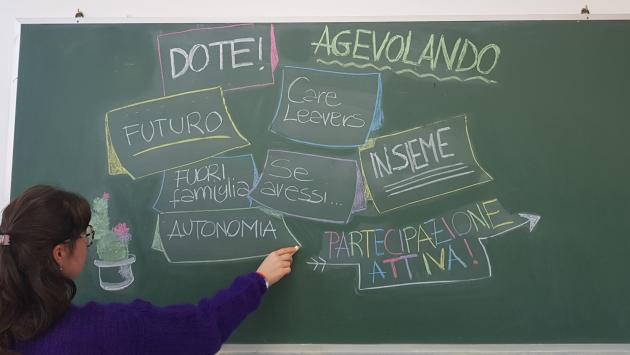 DOTE!
AGEVOLANDO
Care
Leavers
FUTURO
INSIEME
FUORI
famiglia
Se
avessi...
AUTONOMIA
PARTECIPAZIONE
ATTIVA!